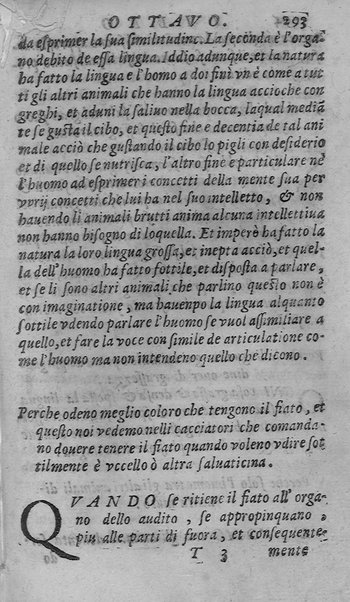 OTTAVO. 293
da esprimer la sua similitudine. La seconda è l'orga
no debito de essa lingua. Iddio adunque, et la natura
ha fatto la lingua e l'homo a doi fini vn è come a tut
ti gli altri animali che hanno la lingua accioche con
greghi, et aduni la saliuo nella bocca, laqual mediã
te se gusta il cibo, et questo fine e decentia de tal ani
male acciò che gustando il cibo lo pigli con desiderio
et di quello se nutrisca, l'altro fine e particulare ne
l'huomo ad esprimer i concetti della mente sua per
vvrij concetti che lui ha nel suo intelletto, & non
hauendo li animali brutti anima alcuna intellettiua
non hanno bisogno di loquella. Et imperò ha fatto la
natura la loro lingua grossa, et inepta acciò, et quel-
la dell'huomo ha fatto sottile, et disposta a parlare,
et se li sono altri animali che parlino questo non è
con imaginatione, ma hauenpo la lingua alquanto
sottile vdendo parlare l'huomo se vuol assimiliare a
quello, et fare la voce con simile de articulatione co-
me l'huomo ma non intendeno quello che dicono.
Perche odeno meglio coloro che tengono il fiato, et
questo noi vedemo nelli cacciatori che comanda-
no douere tenere il fiato quando voleno vdire sot
tilmente è vccello ò altra saluaticina.
QVANDO se ritiene il fiato all'orga-
no dello audito, se appropinquano,
piu alle parti di fuora, et consequente-
T 3 mente